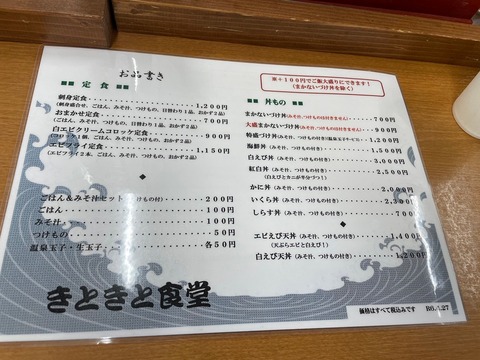 お品書き
※+100円でご飯大盛りにできます！
(まかないづけ丼を除く)
定食
刺身定食・・・・・・・・・1,200円
(刺身盛合せ、ごはん、みそ汁、つけもの、日替わり1品、おかず2品)
おまかせ定食・・・・・・・700円
(ごはん、みそ汁、つけもの、日替わり1品、おかず2品)
白エビクリームコロッケ定食・・・900円
(コロッケ1個、ごはん、みそ汁、つけもの、おかず2品)
エビフライ定食・・・・・・1,150円
(エビフライ2本、ごはん、みそ汁、つけもの、おかず2品)
ごはん&みそ汁セット(つけもの付)・・・200円
ごはん・・・・・・・・・100円
みそ汁・・・・・・・・・100円
つけもの・・・・・・・・50円
温泉玉子・生玉子・・・・各50円
丼もの
まかないづけ丼(みそ汁、つけもの付きません)・・・700円
大盛まかないづけ丼(みそ汁、つけもの付きません)・・・900円
特盛づけ丼(みそ汁、つけもの付き)
海鮮丼(みそ汁、つけもの付き)・・・1,500円
白えび丼(みそ汁、つけもの付き)・・・3,000円
紅白丼(みそ汁、つけもの付き)・・・2,500円
(白えびとカニが半分づつ！)
かに丼(みそ汁、つけもの付き)・・・2,000円
いくら丼(みそ汁、つけもの付き)・・・2,300円
しらす丼(みそ汁、つけもの付き)・・・700円
エビえび天丼(みそ汁、つけもの付き)・・・1,400円
(天ぷらエビと白えび！)
白えび天丼(みそ汁、つけもの付き)・・・1,200円
きときと食堂
価格はすべて税込みです